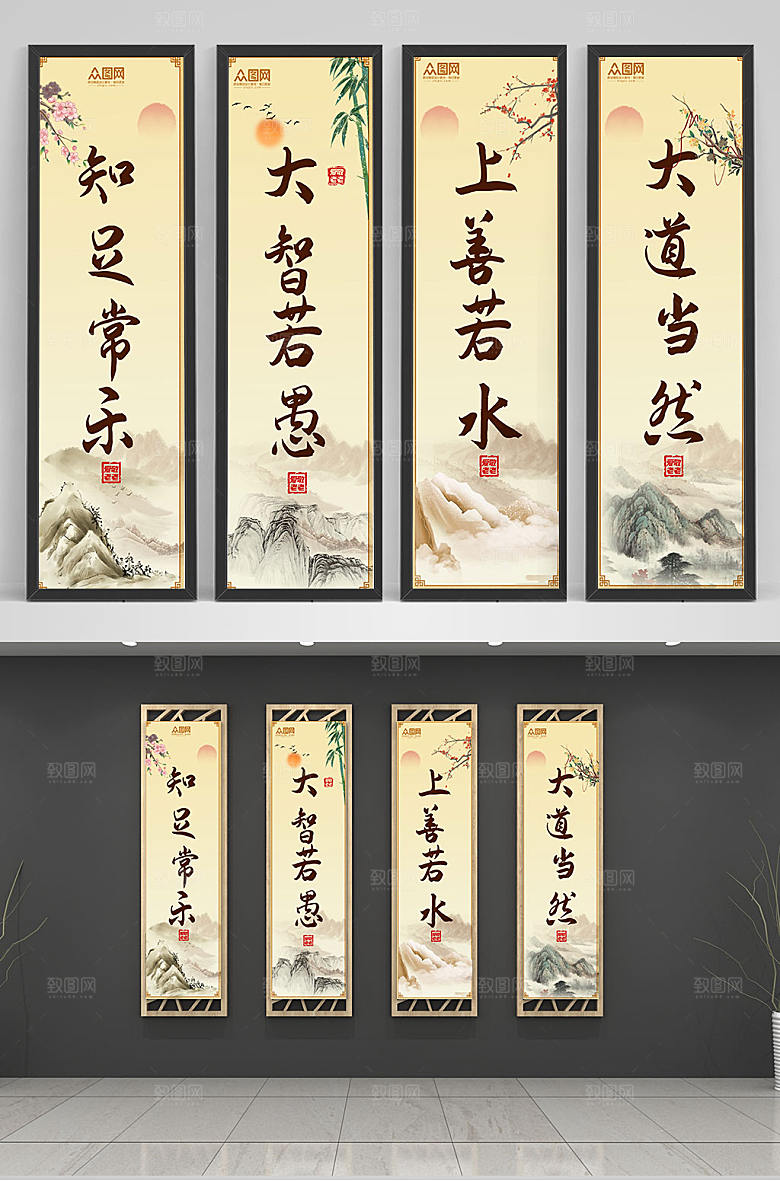 众图网
众图网
众图网
众图网
知足常乐
大智若愚
上善若水
大道当然
致图网
众图网
众图网
众图网
知足常乐
大智若愚
上善若水
大道当然